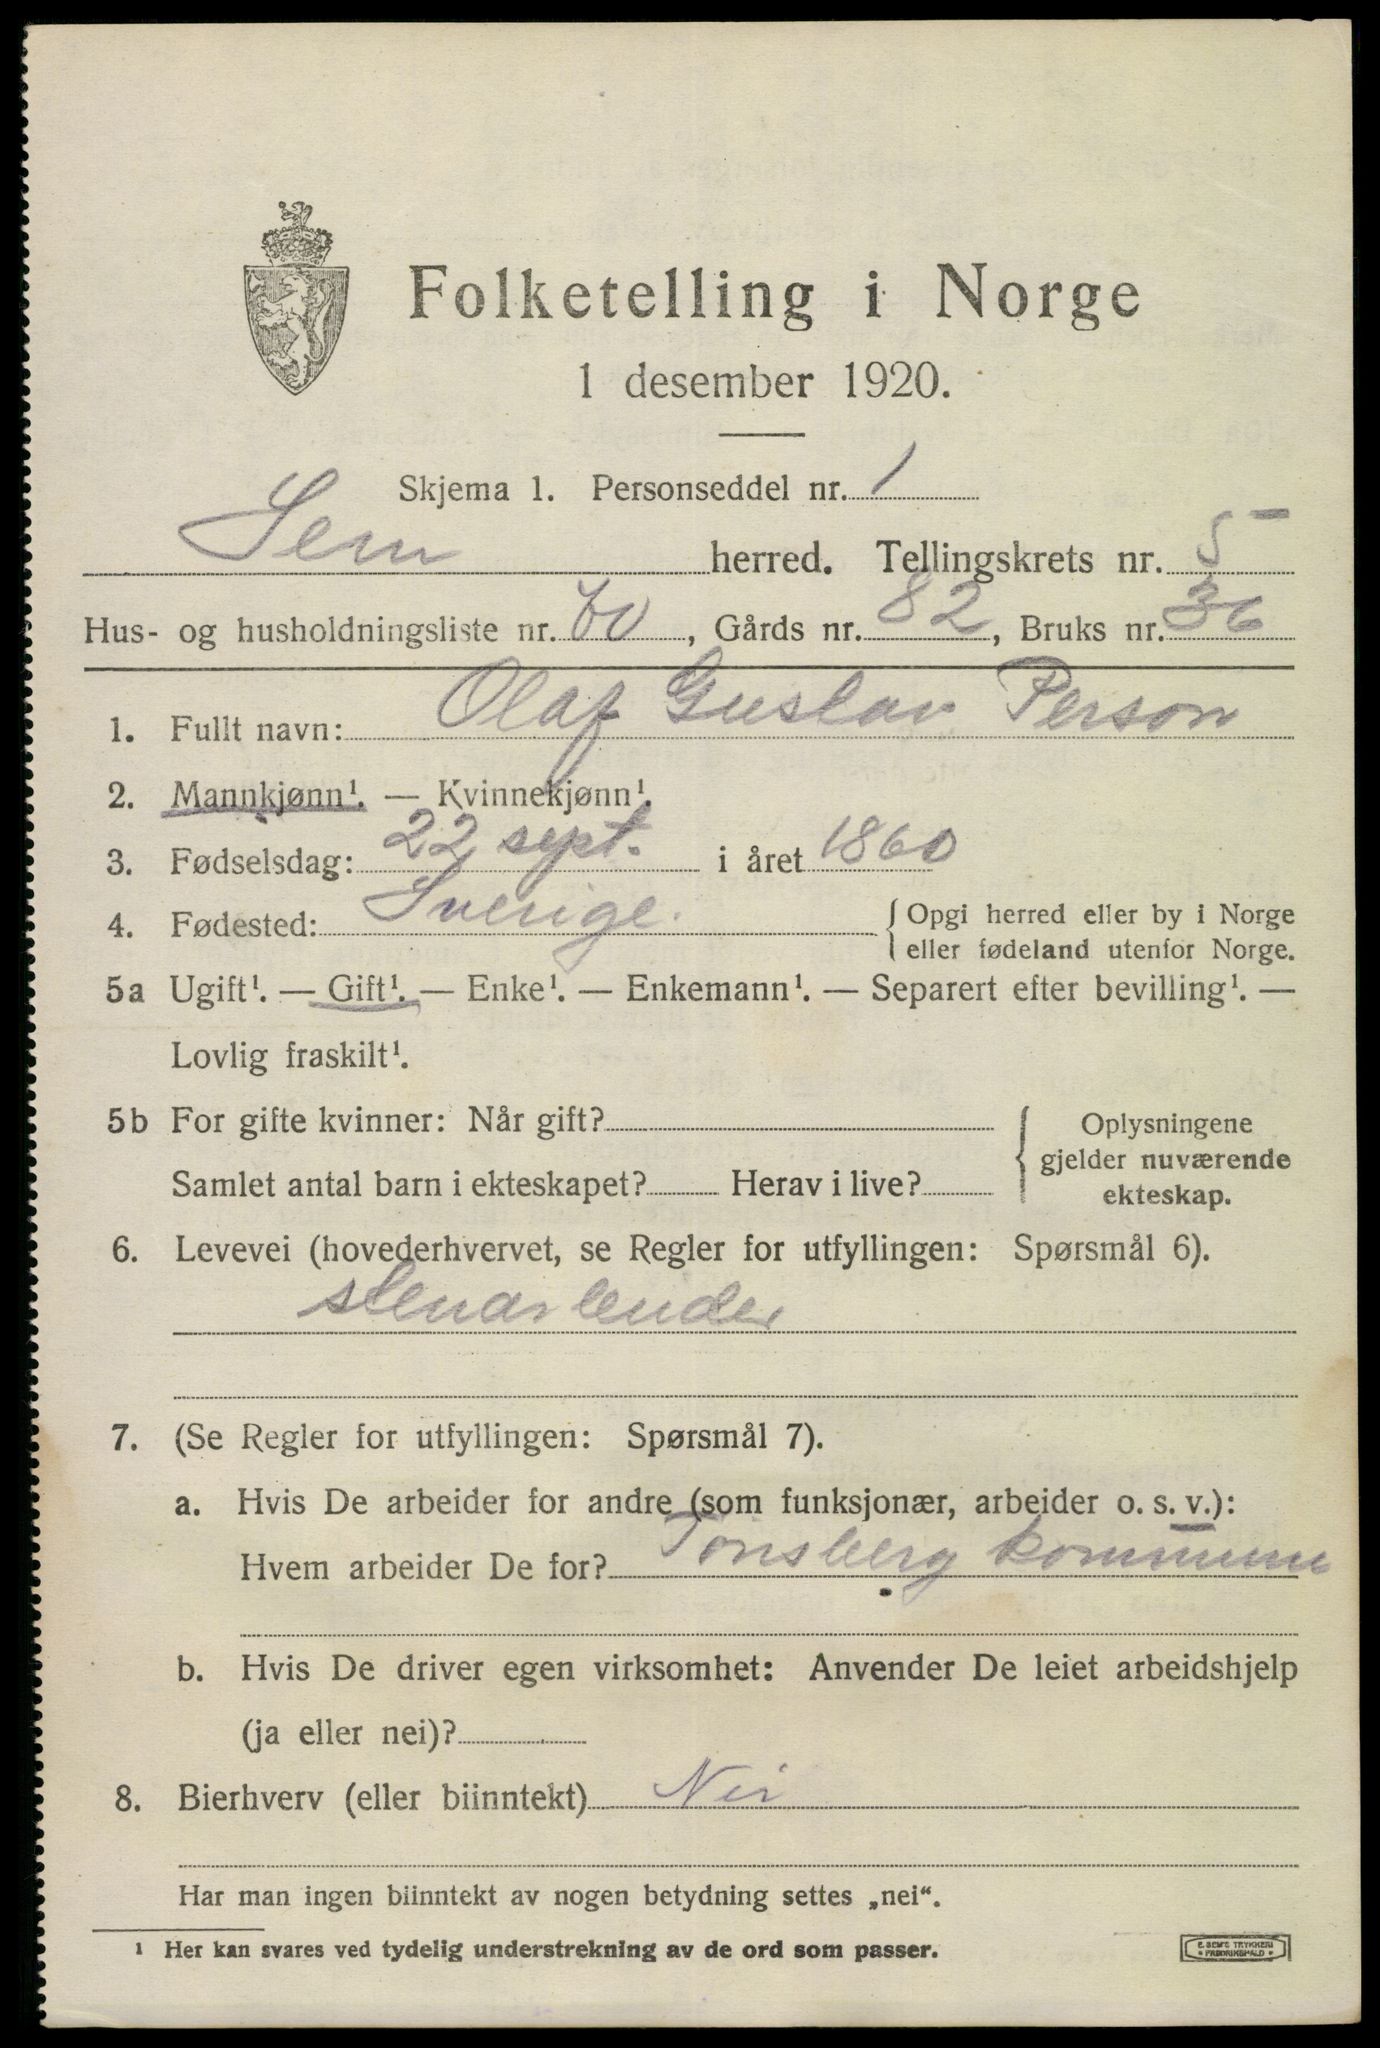 Folketelling i Norge
1 desember 1920.
Skjema 1. Personseddel nr. 1
Sem herred. Tellingskrets nr. 5
Hus- og husholdningsliste nr. 70, Gårds nr. 82, Bruks nr. 36
1. Fullt navn: Olaf Gustav Person
2. Mannkjønn¹. — Kvinnekjønn¹.
3. Fødselsdag: 22 sept. i året 1860
4. Fødested: Sverige. { Opgi herred eller by i Norge
eller fødeland utenfor Norge.
5a Ugift¹. — Gift¹. — Enke¹. — Enkemann¹. — Separert efter bevilling¹. —
Lovlig fraskilt¹.
5b For gifte kvinner: Når gift? { Oplysningene
gjelder nuværende
Samlet antal barn i ekteskapet? Herav i live? ekteskap.
6. Levevei (hovederhvervet, se Regler for utfyllingen: Spørsmål 6).
stenarbeider
7. (Se Regler for utfyllingen: Spørsmål 7).
a. Hvis De arbeider for andre (som funksjonær, arbeider o. s. v.):
Hvem arbeider De for? Tønsberg kommune
b. Hvis De driver egen virksomhet: Anvender De leiet arbeidshjelp
(ja eller nei)?
8. Bierhverv (eller biinntekt) Nei
Har man ingen biinntekt av nogen betydning settes „nei".
¹ Her kan svares ved tydelig understrekning av de ord som passer.
E. SEM'S TRYKKERI
FREDRIKSHALD